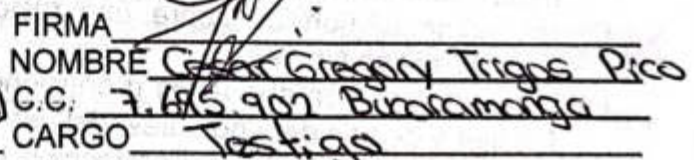 FIRMA
NOMBRE Cesar Gregory Trigos Pico
C.C. 7.685.902 Bucaramanga
CARGO Testigo